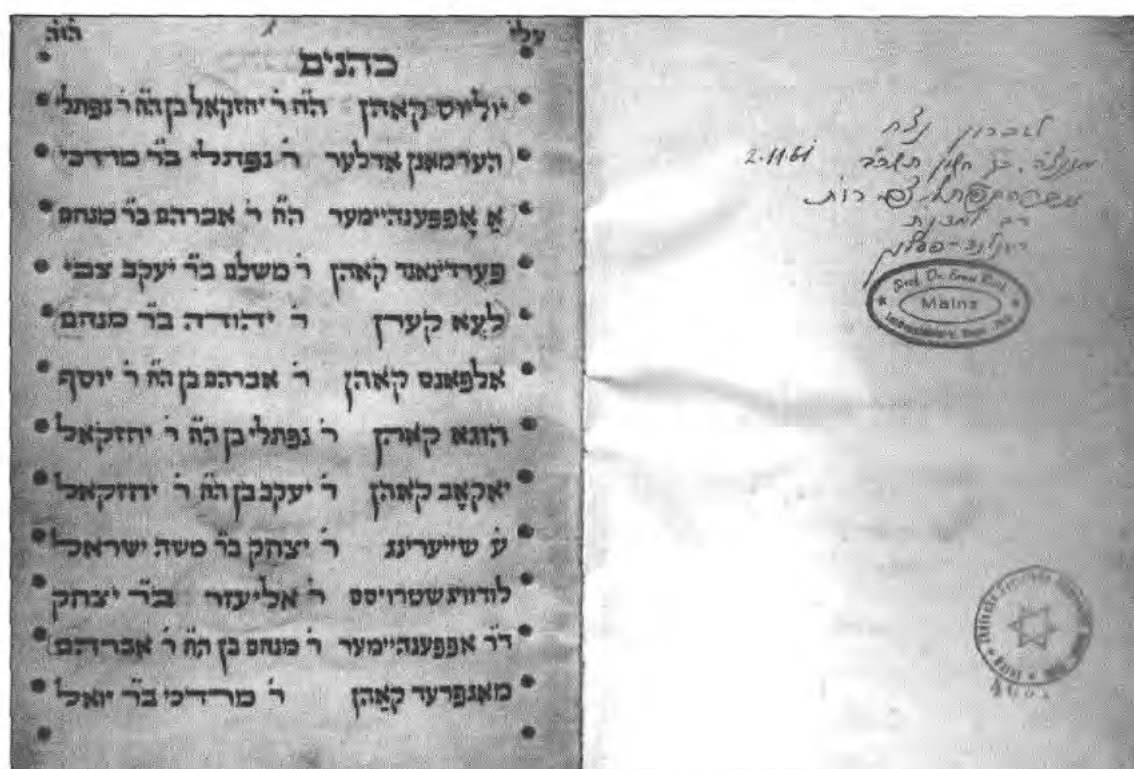 עלי הזה
כהנים
יוליוס קאהן הח׳ ר׳ יחזקאל בן הח׳ ר׳ נפתלי
הערמאנן אדלער ר׳ נפתלי בר׳ מרדכי
א אָפפענהיימער הח׳ ר׳ אברהם בר׳ מנחם
פערדינאנד קאהן ר׳ משלם בר׳ יעקב צבי
לעא קערן ר׳ יהודה בר׳ מנחם
אלפאנס קאהן ר׳ אברהם בן הח׳ ר׳ יוסף
הוגא קאהן ר׳ נפתלי בן הח׳ ר׳ יחזקאל
יאקאָב קאהן ר׳ יעקב בן הח׳ ר׳ יחזקאל
ע׳ שייערינג ר׳ יצחק בר׳ משה ישראל
לודוויג שטרויסס ר׳ אליעזר בר׳ יצחק
ד״ר אפפענהיימער ר׳ מנחם בן הח׳ ר׳ אברהם
מאנפרעד קאַהן ר׳ מרדכי בר׳ יואל
לזכרון נצח
2.11.61
רות
רב
Prof. Dr. Ernst Roth
Mainz